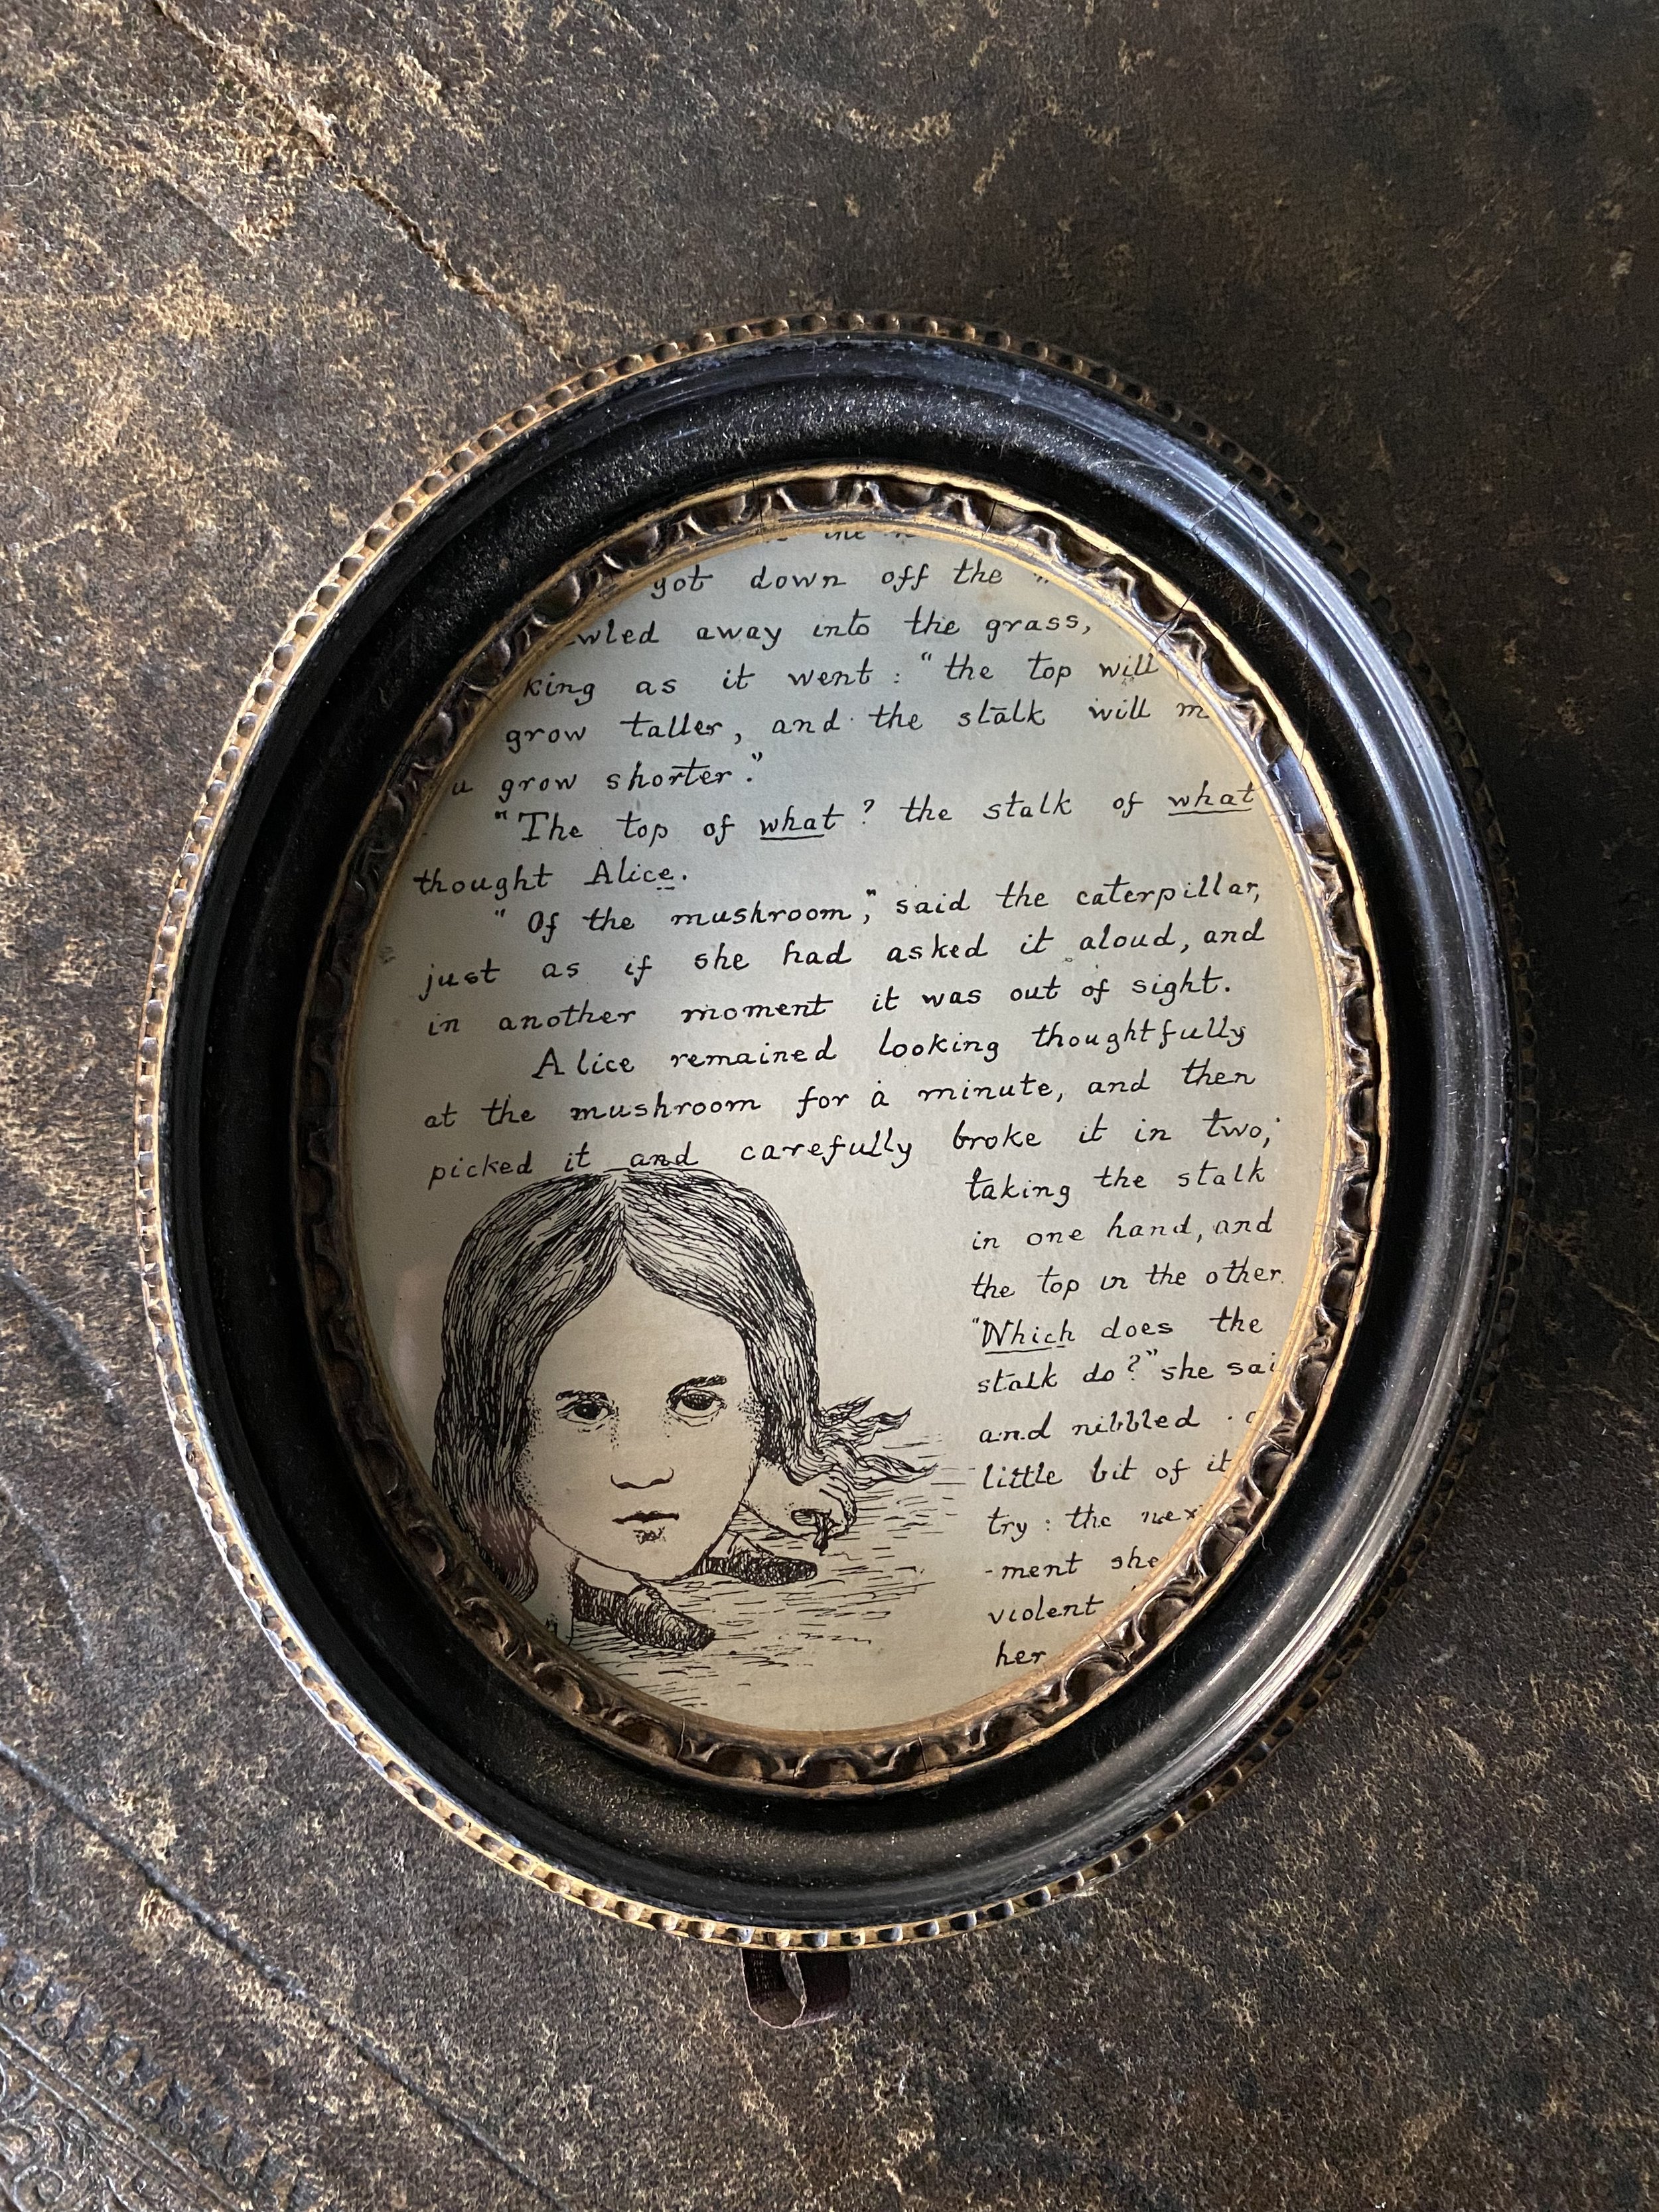 the
got down off the
wled away into the grass,
king as it went : "the top will
grow taller, and the stalk will m
u grow shorter."
"The top of what? the stalk of what
thought Alice.
"Of the mushroom," said the caterpillar,
just as if she had asked it aloud, and
in another moment it was out of sight.
Alice remained looking thoughtfully
at the mushroom for a minute, and then
picked it and carefully broke it in two,
taking the stalk
in one hand, and
the top in the other.
"Which does the
stalk do?" she sai
and nibbled a
little bit of it
try : the nex
-ment she
violent
her